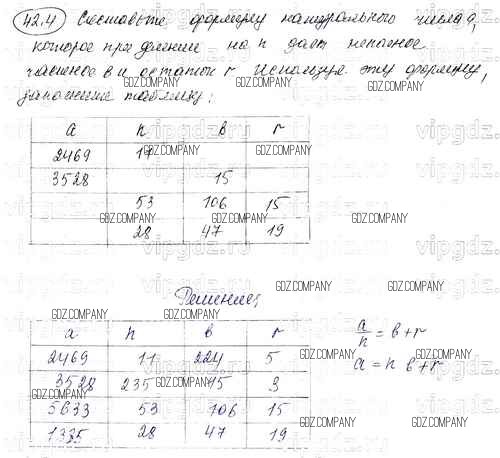 42.4 Составьте формулу натурального числа a,
которое при делении на n дает неполное
частное в и остаток r. Используя эту формулу,
заполните таблицу:
a n в r
2469 11
3528 15
53 106 15
28 47 19
Решение:
a n в r
2469 11 224 5
3528 235 15 3
5633 53 106 15
1335 28 47 19
a/n = в + r
a = n в + r
GDZ.COMPANY
vipgdz.ru